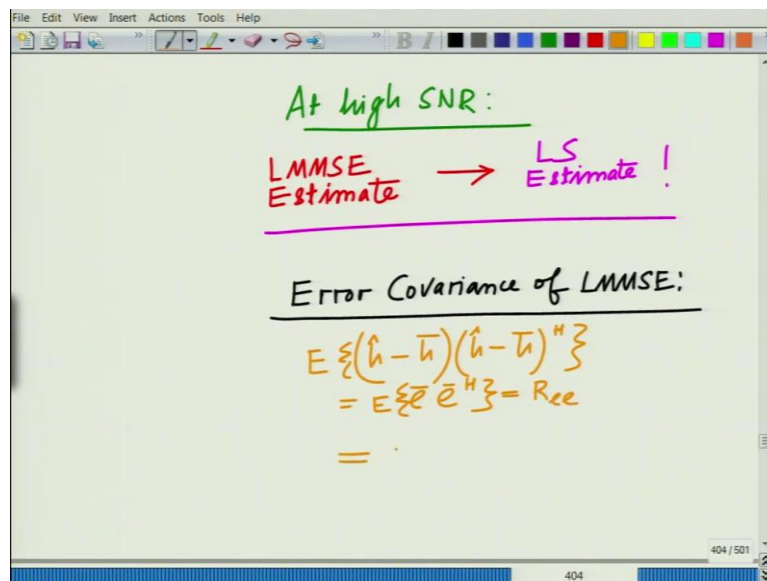 File Edit View Insert Actions Tools Help
B I
At high SNR:
LMMSE Estimate → LS Estimate !
Error Covariance of LMMSE:
E {(ĥ - h̄)(ĥ - h̄)^H}
= E{ē ē^H} = Ree
=
404 / 501
404